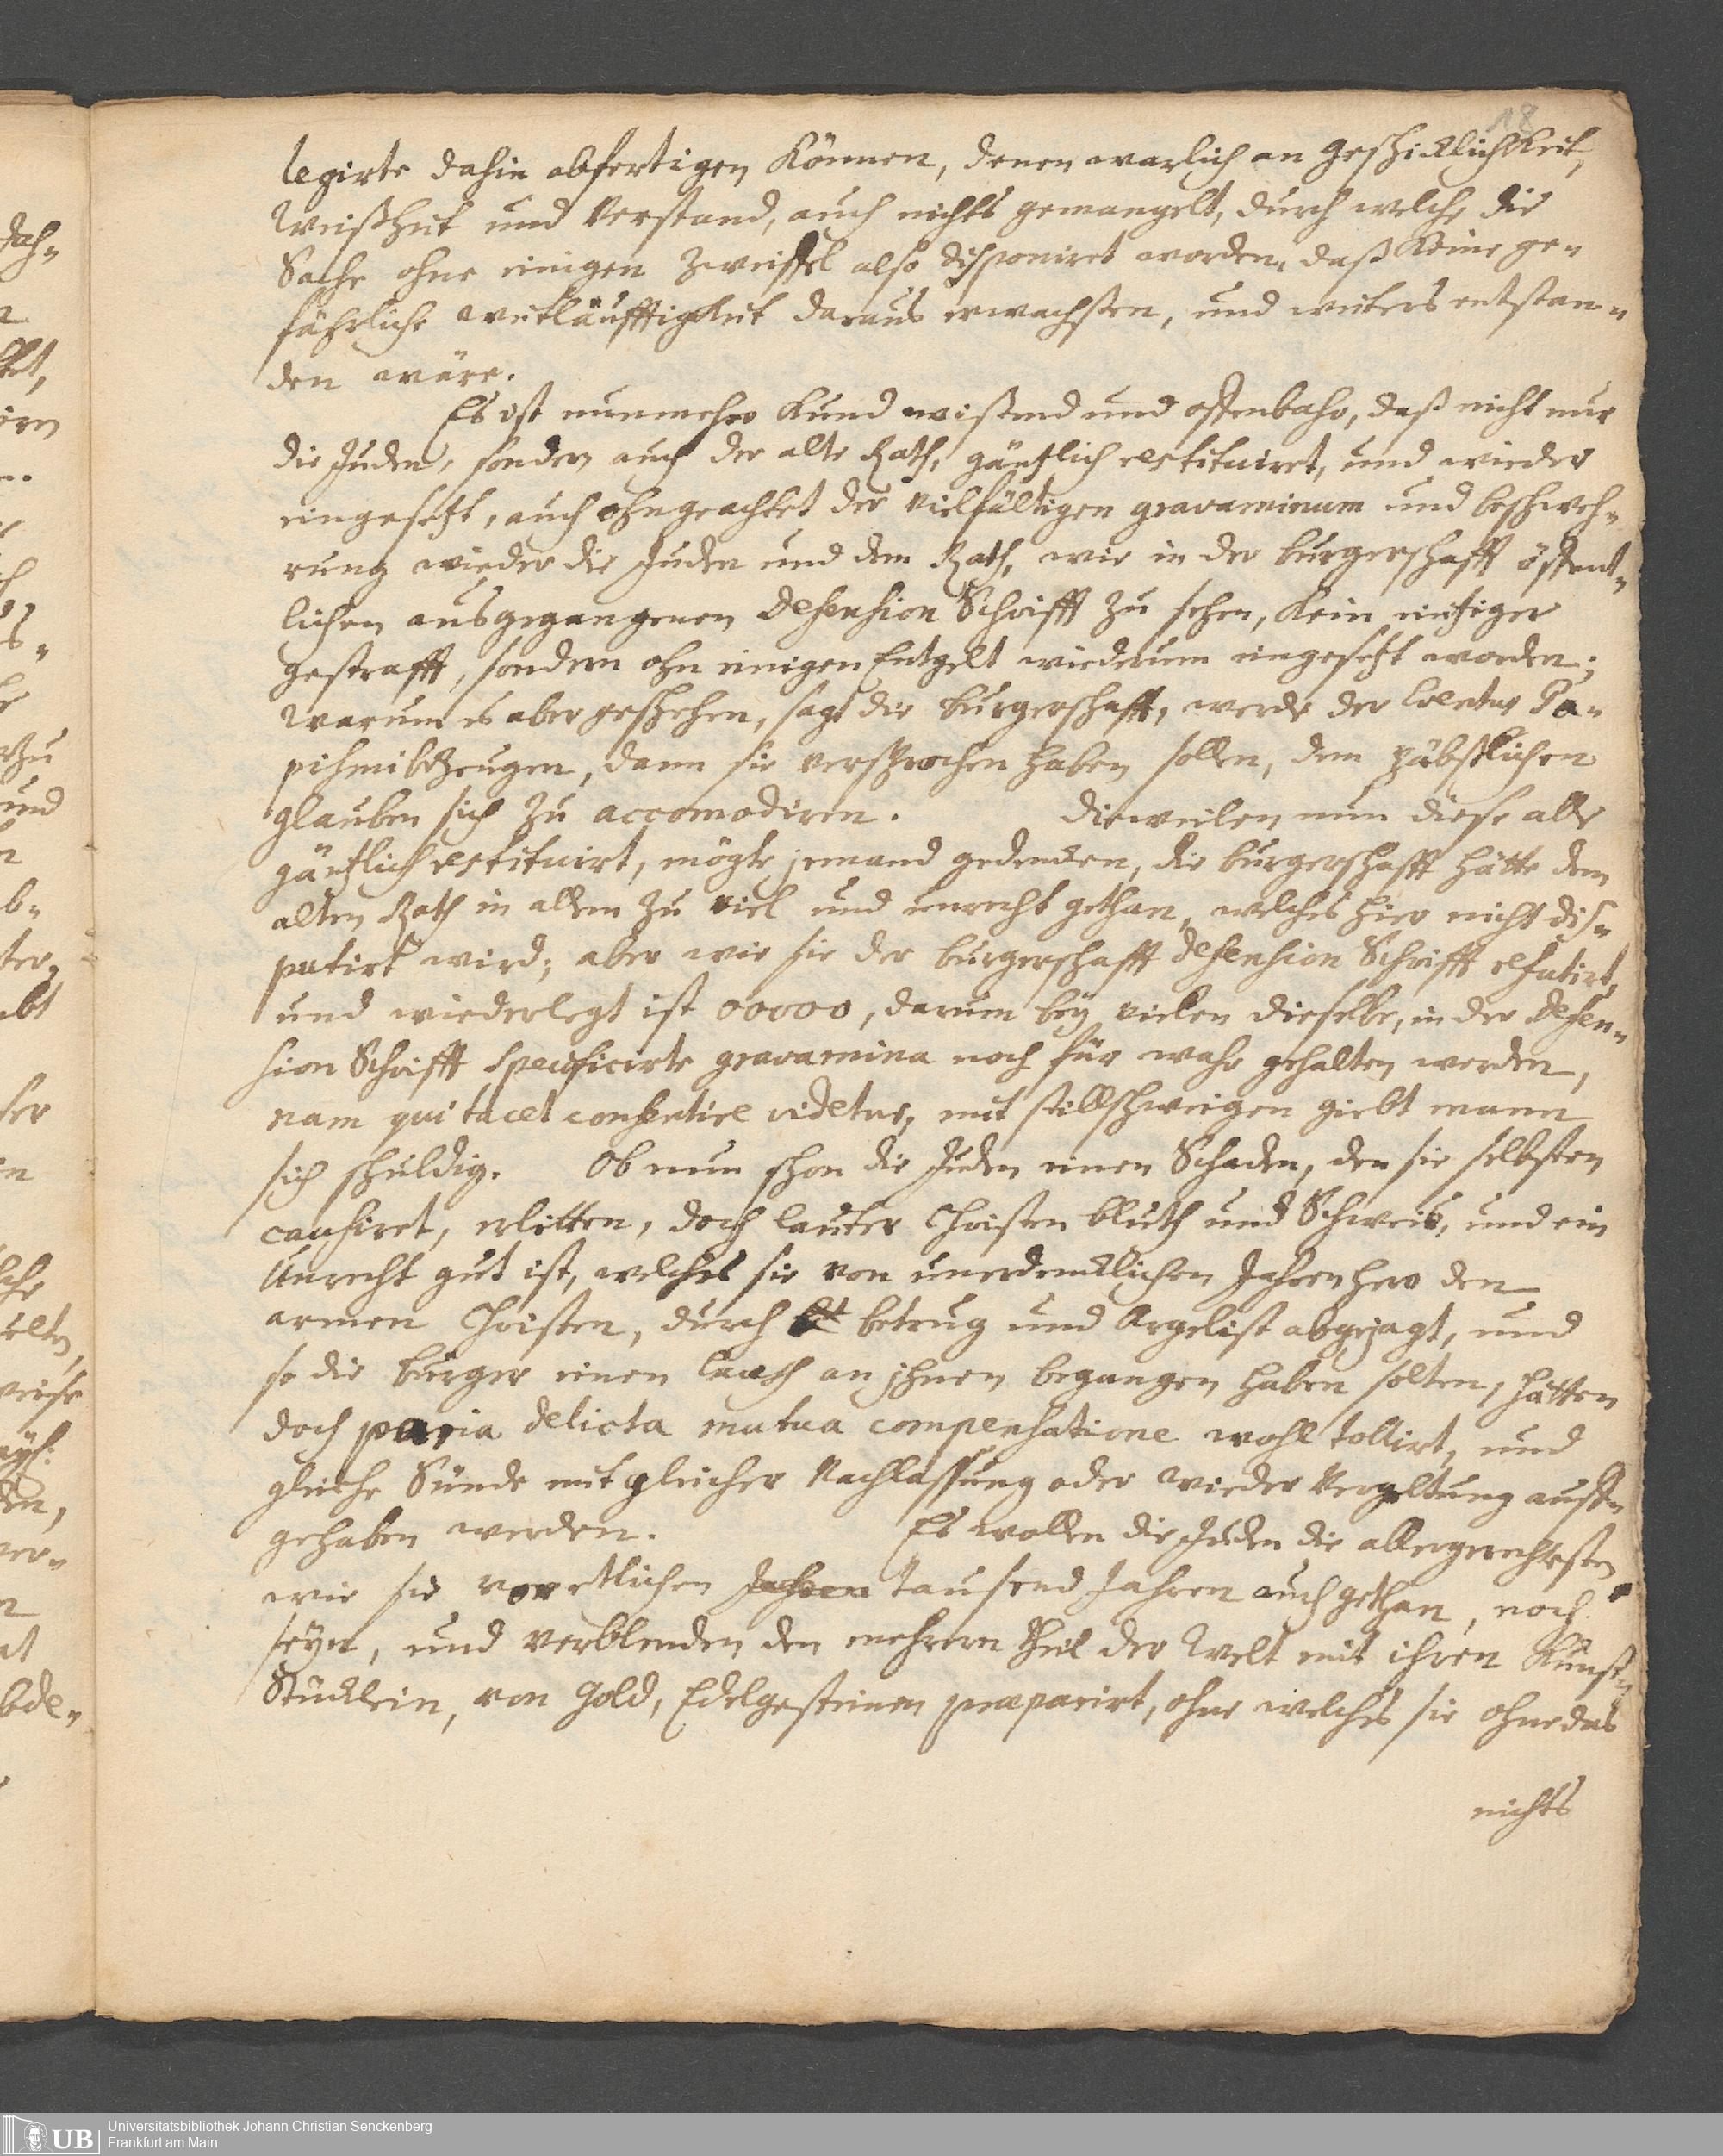 18
legirte dahin abfertigen können, denen warlich an geschicklichkeit,
Weißheit und Verstand, auch nichts gemangelt, durch welche die
Sache ohne einigen Zweiffel also disponiret worden, daß keine ge-
fährliche weitläufftigkeit daraus erwachsen, und weiters entstan-
den wäre.
Es ist nunmehro kund wißend und offenbahr, daß nicht nur
die Juden, sondern auch der alte Rath, gäntzlich restituiret, und wieder
eingesetzt, auch ohngeachtet der vielfältigen gravaminum und beschweh-
rung wieder die Juden und dem Rath, wie in der burgerschafft öffent-
lichen ausgegangenen Defension Schrifft zu sehen, kein eintziger
gestrafft, sondern ohn einigen Entgelt wiederum eingesetzt worden;
warum es aber geschehen, sagt die burgerschafft, werde der Pa-
pismi bezeugen, dann sie versprochen haben sollen, dem päbstlichen
glauben sich zu accomodiren. Dieweilen nun diese alle
gäntzlich restituirt, mögte jemand gedencken, die burgerschafft hätte dem
alten Rath in allem zu viel und unrecht gethan, welches hier nicht dis-
putirt wird; aber wie sie der burgerschafft defension Schrifft refutirt,
und wiederlegt ist 00000, darum bey vielen dieselbe, in der defen-
sion Schrifft specificirte gravamina noch für wahr gehalten werden,
nam qui tacet consentire videtur, mit stillschweigen giebt mann
sich schuldig. Ob nun schon die Juden einen Schaden, den sie selbsten
causiret, erlitten, doch lauter Christen bluth und Schweis, und ein
Unrecht gut ist, welches sie von unerdencklichen Jahren hero den
armen Christen, durch betrug und Argelist abgejagt, und
so die burger einen an ihnen begangen haben solten, hätten
doch paria delicta mutua compensatione wohl tollirt, und
gleiche Sünde mit gleicher Nachlassung oder wieder Vergeltung auff-
gehaben werden. Es wollen die Juden die allergerechtesten
wie sie vor etlichen Jahren tausend Jahren auch gethan, noch
seyn, und verblenden den mehrern theil der Welt mit ihren Kunst-
Stücklein, von Gold, Edelgesteinen praeparirt, ohne welches sie ohnedas
nichts
UB Universitätsbibliothek Johann Christian Senckenberg
Frankfurt am Main